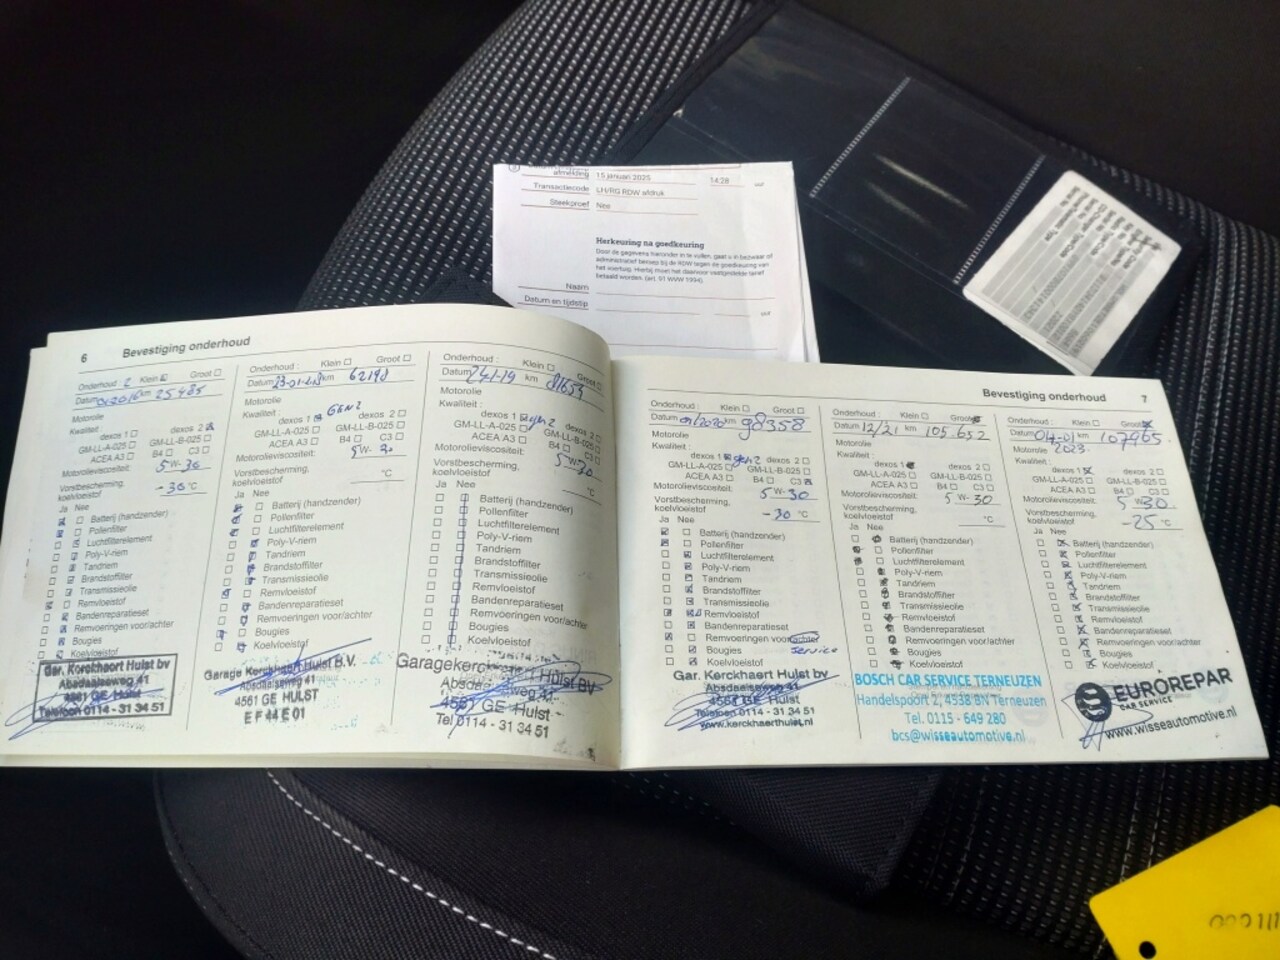 afmelding 15 januari 2025 14:28 uur
Transactiecode LH/RG RDW afdruk
Steekproef Nee
Herkeuring na goedkeuring
Door de gegevens hieronder in te vullen, gaat u in bezwaar of
administratief beroep bij de RDW tegen de goedkeuring van
het voertuig. Hierbij moet het daarvoor vastgestelde tarief
betaald worden. (art. 91 WVW 1994).
Naam
Datum en tijdstip
uur
6 Bevestiging onderhoud
Onderhoud : 2 Klein Groot
Datum km 25485
Motorolie
Kwaliteit :
dexos 1 dexos 2
GM-LL-A-025 GM-LL-B-025
ACEA A3 B4 C3
Motorolieviscositeit: 5W-30
Vorstbescherming,
koelvloeistof -30 °C
Ja Nee
Batterij (handzender)
Pollenfilter
Luchtfilterelement
Poly-V-riem
Tandriem
Brandstoffilter
Transmissieolie
Remvloeistof
Bandenreparatieset
Remvoeringen voor/achter
Bougies
Koelvloeistof
Gar. Kerckhaert Hulst bv
Absdaalseweg 41
4561 GE Hulst
Telefoon 0114 - 31 34 51
Onderhoud : Klein Groot
Datum 23-01-18 km 62198
Motorolie
Kwaliteit : GEN2
dexos 1 dexos 2
GM-LL-A-025 GM-LL-B-025
ACEA A3 B4 C3
Motorolieviscositeit: 5W-30
Vorstbescherming,
koelvloeistof °C
Ja Nee
Batterij (handzender)
Pollenfilter
Luchtfilterelement
Poly-V-riem
Tandriem
Brandstoffilter
Transmissieolie
Remvloeistof
Bandenreparatieset
Remvoeringen voor/achter
Bougies
Koelvloeistof
Garage Kerckhaert Hulst B.V.
Absdaalseweg 41
4561 GE HULST
EF44E01
Onderhoud : Klein Groot
Datum 24-1-19 km 81659
Motorolie
Kwaliteit :
dexos 1 gen2 dexos 2
GM-LL-A-025 GM-LL-B-025
ACEA A3 B4 C3
Motorolieviscositeit: 5W-30
Vorstbescherming,
koelvloeistof °C
Ja Nee
Batterij (handzender)
Pollenfilter
Luchtfilterelement
Poly-V-riem
Tandriem
Brandstoffilter
Transmissieolie
Remvloeistof
Bandenreparatieset
Remvoeringen voor/achter
Bougies
Koelvloeistof
Hulst BV
Absdaalseweg 41
4561 GE Hulst
Tel 0114 - 31 34 51
Bevestiging onderhoud 7
Onderhoud : Klein Groot
Datum 01/2020 km 98358
Motorolie
Kwaliteit :
dexos 1 gen2 dexos 2
GM-LL-A-025 GM-LL-B-025
ACEA A3 B4 C3
Motorolieviscositeit: 5W-30
Vorstbescherming,
koelvloeistof -30 °C
Ja Nee
Batterij (handzender)
Pollenfilter
Luchtfilterelement
Poly-V-riem
Tandriem
Brandstoffilter
Transmissieolie
Remvloeistof
Bandenreparatieset
Remvoeringen voor/achter
Bougies service
Koelvloeistof
Gar. Kerckhaert Hulst bv
Absdaalseweg 41
4561 GE Hulst
Telefoon 0114 - 31 34 51
www.kerckhaerthulst.nl
Onderhoud : Klein Groot
Datum 12/21 km 105.652
Motorolie
Kwaliteit :
dexos 1 dexos 2
GM-LL-A-025 GM-LL-B-025
ACEA A3 B4 C3
Motorolieviscositeit: 5W-30
Vorstbescherming,
koelvloeistof °C
Ja Nee
Batterij (handzender)
Pollenfilter
Luchtfilterelement
Poly-V-riem
Tandriem
Brandstoffilter
Transmissieolie
Remvloeistof
Bandenreparatieset
Remvoeringen voor/achter
Bougies
Koelvloeistof
BOSCH CAR SERVICE TERNEUZEN
Handelspoort 2, 4538 BN Terneuzen
Tel. 0115 - 649 280
bcs@wisseautomotive.nl
Onderhoud : Klein Groot
Datum 04-01 km 107965
Motorolie 2023
Kwaliteit :
dexos 1 dexos 2
GM-LL-A-025 GM-LL-B-025
ACEA A3 B4 C3
Motorolieviscositeit: 5W30
Vorstbescherming,
koelvloeistof -25 °C
Ja Nee
Batterij (handzender)
Pollenfilter
Luchtfilterelement
Poly-V-riem
Tandriem
Brandstoffilter
Transmissieolie
Remvloeistof
Bandenreparatieset
Remvoeringen voor/achter
Bougies
Koelvloeistof
EUROREPAR
CAR SERVICE
www.wisseautomotive.nl